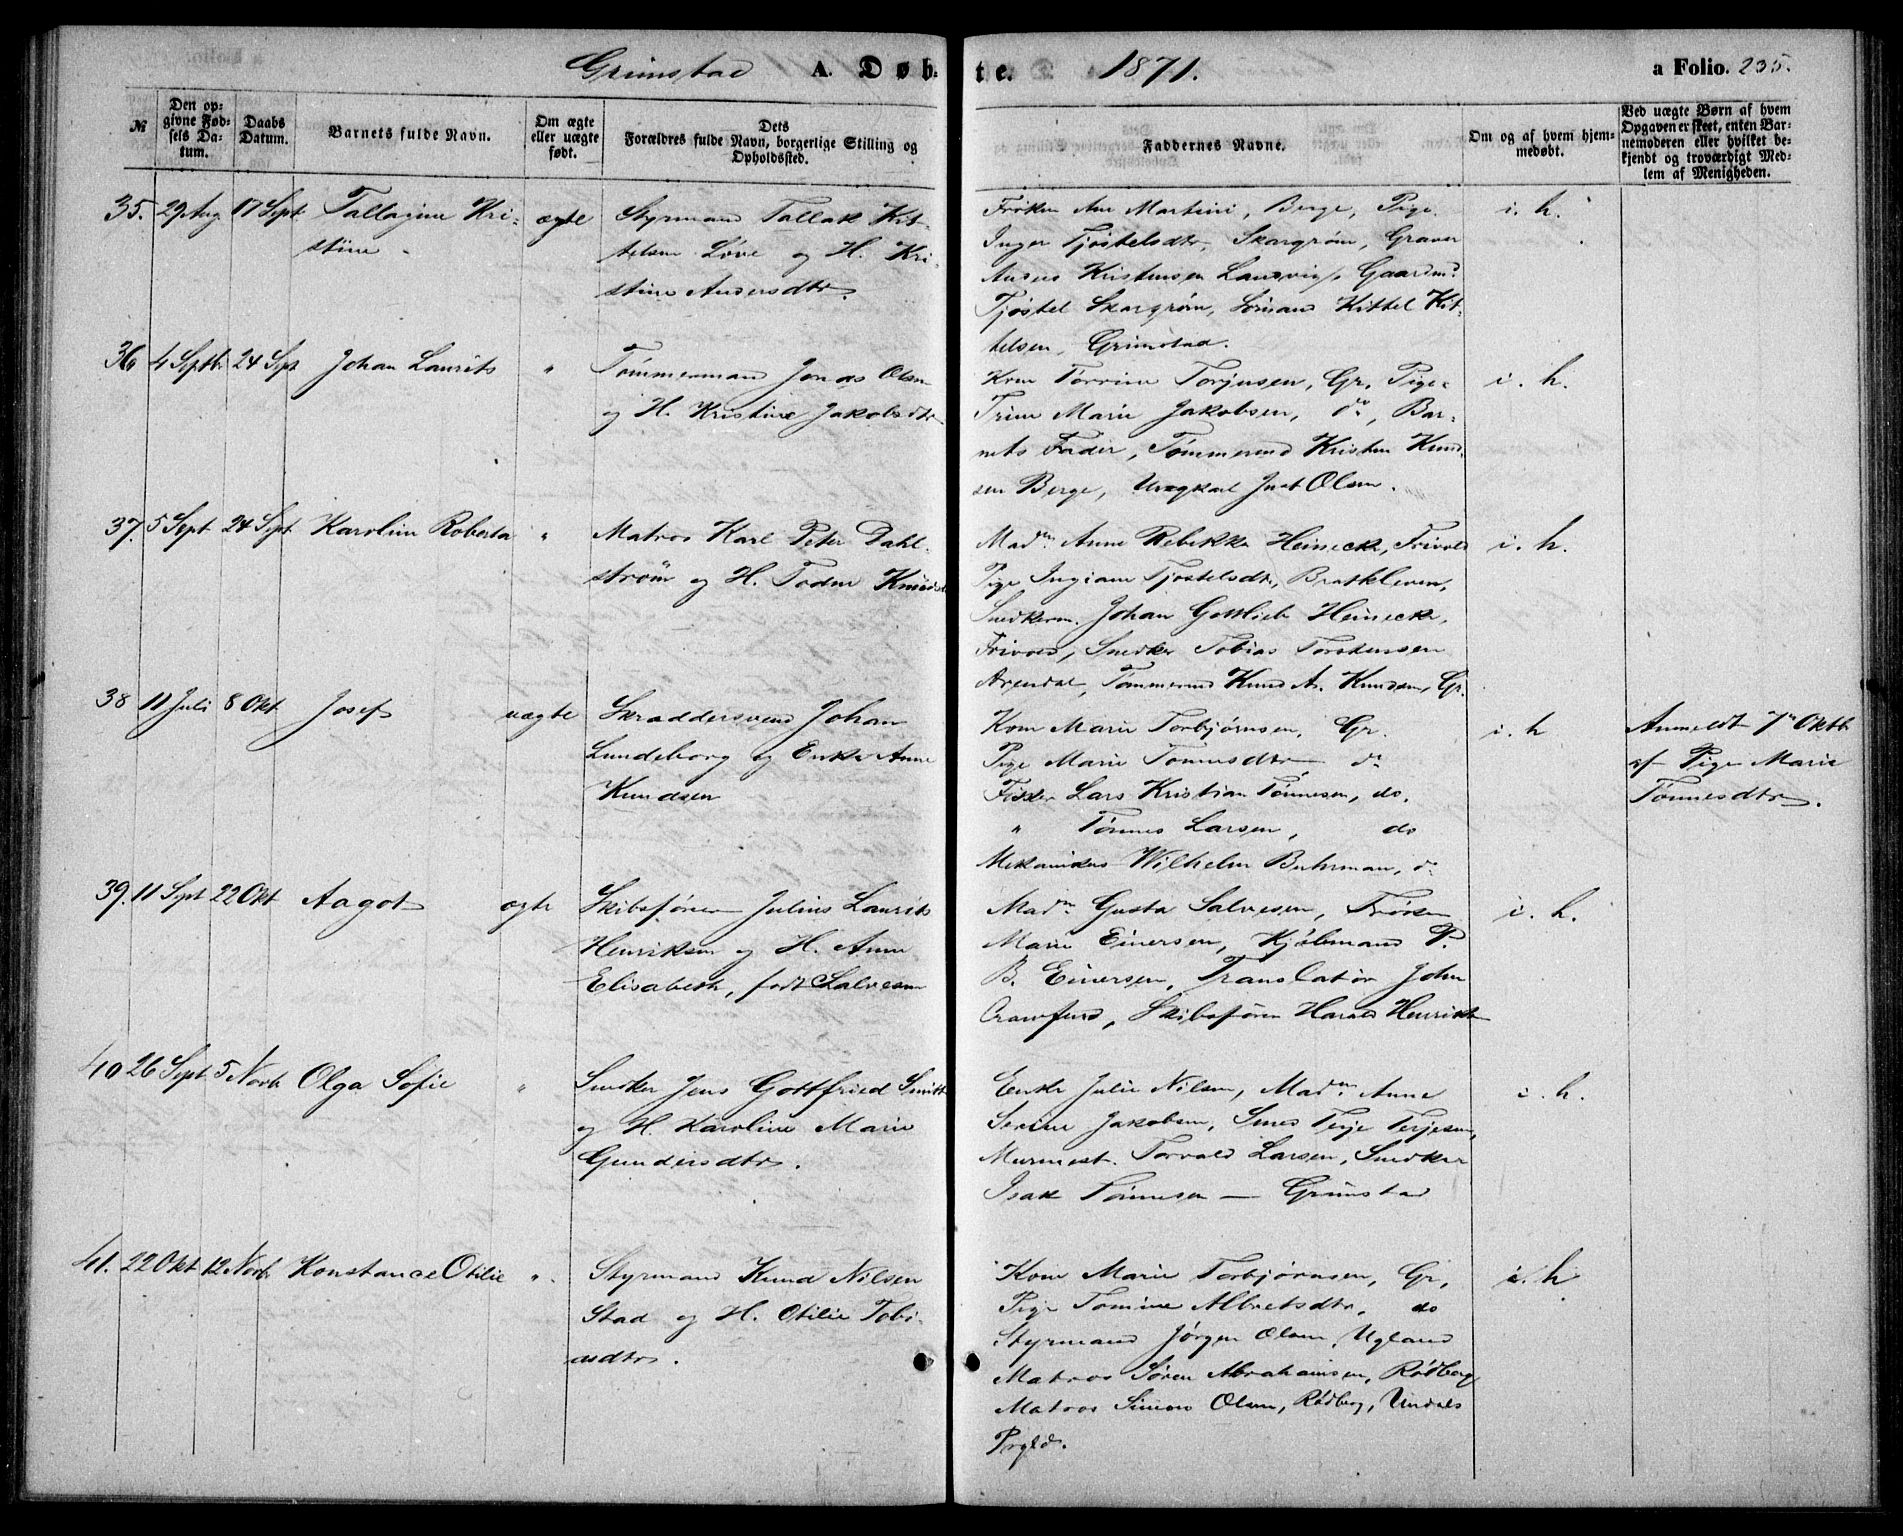 Grimstad A. Døb- te. 1871. a Folio. 235.
№
Den op-
givne Fød-
sels Da-
tum.
Daabs
Datum.
Barnets fulde Navn.
Om ægte
eller uægte
født.
Dets
Forældres fulde Navn, borgerlige Stilling og
Opholdssted.
Faddernes Navne.
Om og af hvem hjem-
medøbt.
Ved uægte Børn af hvem
Opgaven er skeet, enten Bar-
nemoderen eller hvilket be-
kjendt og troværdigt Med-
lem af Menigheden.
35. 29 Aug 17 Sept Tallagine Kri-
stine
ægte
Styrmand Tallak Kit-
telsen Löve og H. Kri-
stine Andersdtr.
Frøken Ane Martini, Berge, Pige
Inger Tjöstelsdtr, Skargröm, Graver
Anders Kristensen Landvig, Gaardm.
Tjöstel Skargröm, Sömand Kittel Kit-
telsen, Grimstad.
i. h.
36 4 Septbr 24 Sept Johan Laurits "
Tömmermand Jonas Olsen
og H. Kristine Jakobsdtr
Kone Torrine Torjusen, Gr, Pige
Trine Marie Jakobsen, do, Bar-
nets Fader, Tömmermd Kristen Knud-
sen Berge, Ungkarl Just Olsen.
i. h.
37. 5 Sept 24 Sept Karoline Roberta "
Matros Karl Peter Dahl-
ström og H. Todne
Madm. Anne Rebekka Heinecke, Frivold
Pige Ingiane Tjöstelsdtr, Bratkleven,
Snedkerm. Johan Gottlieb Heinecke,
Frivold, Snedker Tobias Torstensen
Arendal, Tömmermd Knud As. Knudsen, Gr.
i. h.
38 11 Juli 8 Okt Josef uægte
Skraddersvend Johan
Lundeborg og Enke Anne
Knudsen
Kone Marie Torbjörnsen, Gr.
Pige Marie Tönnesdtr do
Fisker Lars Kristian Tönnesen, do.
" Tönnes Larsen, do
Mekanikus Wilhelm Buhrman, do
i. h
Anmeldt 7de Oktb
af Pige Marie
Tönnesdtr.
39. 11 Sept 22 Okt Aagot ægte
Skibsförer Julius Laurits
Henriksen og H. Anne
Elisabeth, födt Salvesen
Madm Gusta Salvesen, Fröken
Marie Einersen, Kjöbmand P.
B. Einersen, Translatör John
Crawfurd, Skibsförer Harald Henriksen
i. h.
40 26 Sept 5 Novb Olga Sofie "
Snedker Jens Gottfried Smitt
og H. Karoline Marie
Gundersdtr.
Enke Julie Nilsen, Madm. Anne
Serine Jakobsen, Smed Terje Terjesen,
Murmest. Torvald Larsen, Snedker
Isak Tönnesen — Grimstad
i. h.
41. 22 Okt 12 Novb Konstance Otilie "
Styrmand Knud Nilsen
Stad og H. Otilie Tobi-
asdtr.
Kone Marie Torbjörnsen, Gr,
Pige Tomine Albretsdtr, do
Styrmand Jörgen Olsen Ugland
Matros Sören Abrahamsen, Rödberg
Matros Simon Olsen, Rödberg, Undals
Prgld.
i. h